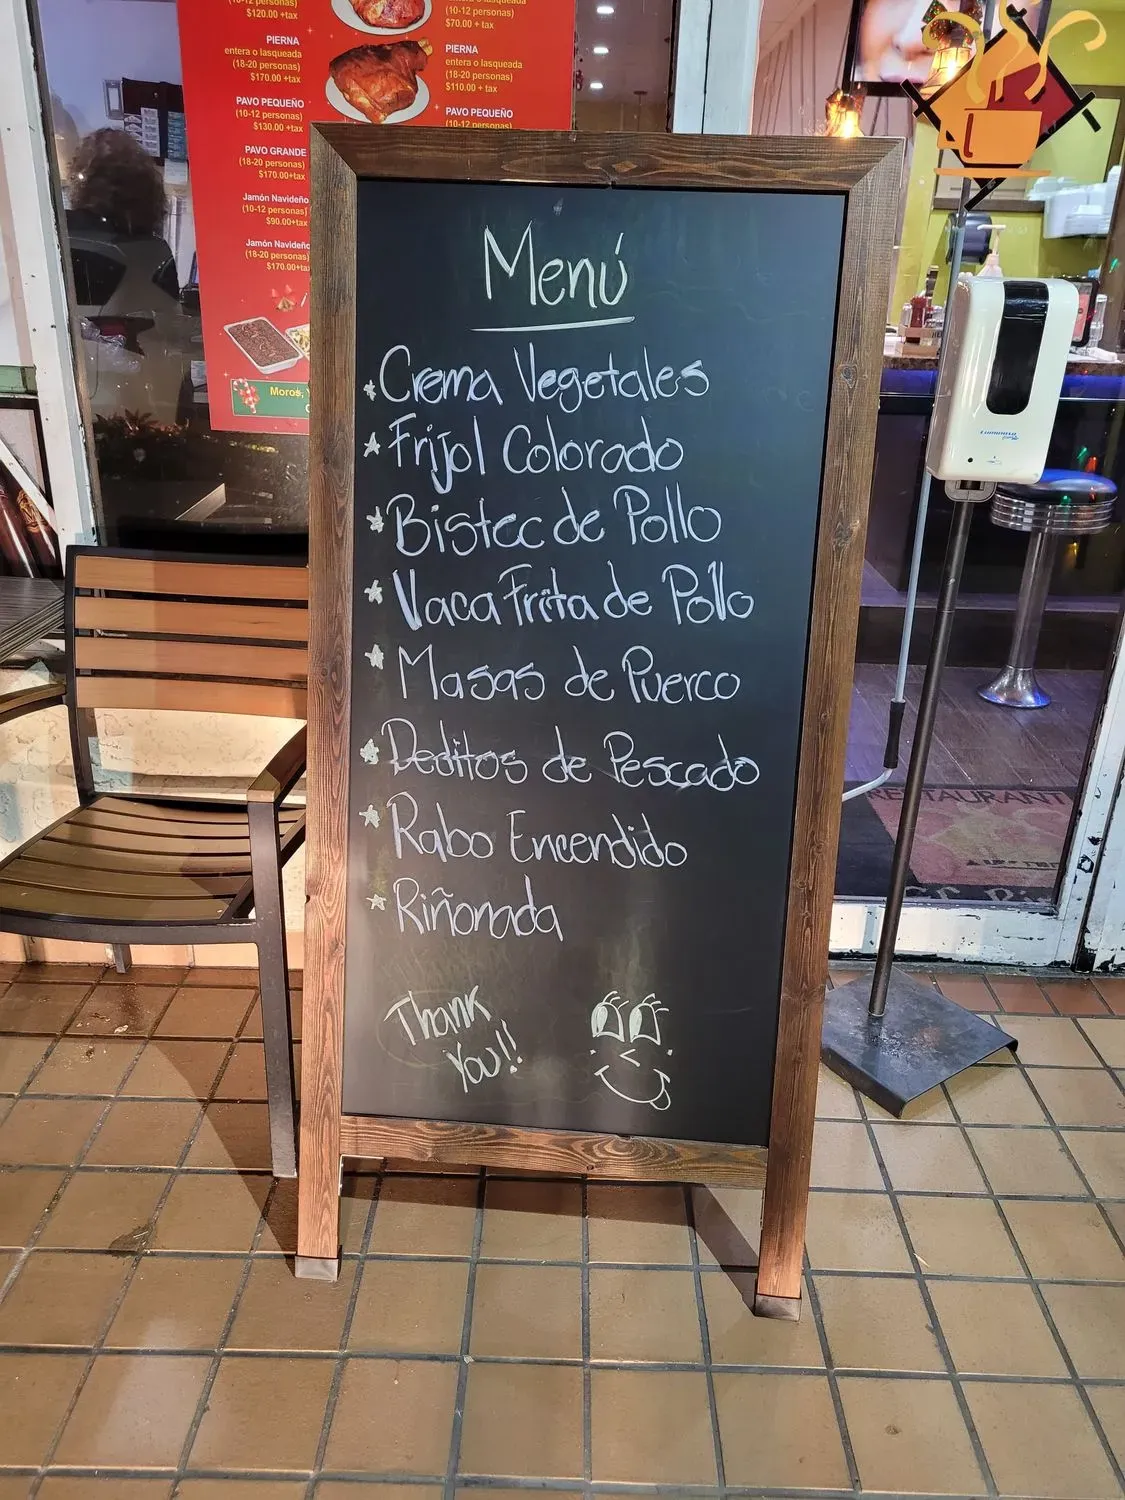 (10-12 personas)
$120.00 +tax
PIERNA
entera o lasqueada
(18-20 personas)
$170.00 +tax
PAVO PEQUEÑO
(10-12 personas)
$130.00 +tax
PAVO GRANDE
(18-20 personas)
$170.00+tax
Jamón Navideño
(10-12 personas)
$90.00+tax
Jamón Navideño
(18-20 personas)
$170.00+tax
Moros,
entera o lasqueada
(10-12 personas)
$70.00 + tax
PIERNA
entera o lasqueada
(18-20 personas)
$110.00 + tax
PAVO PEQUEÑO
(10-12 personas)
Menú
Crema Vegetales
Frijol Colorado
Bistec de Pollo
Vaca Frita de Pollo
Masas de Puerco
Deditos de Pescado
Rabo Encendido
Riñonada
Thank
You!!
RESTAURANT